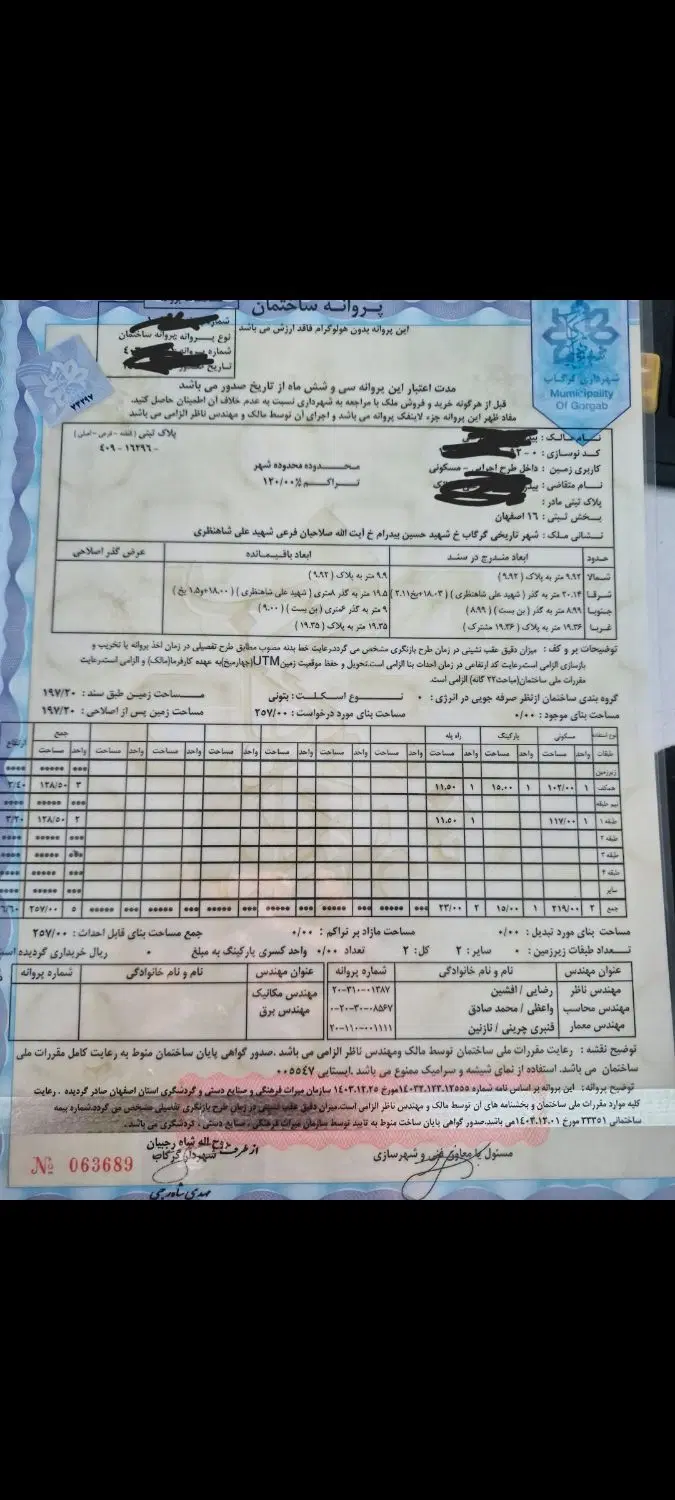 پروانه ساختمان
این پروانه بدون هولوگرام فاقد ارزش می باشد
نوع پروانه پروانه ساختمان
۷۳۲۹۷
شهرداری گرگاب
Municipality
Of Gorgab
مدت اعتبار این پروانه سی و شش ماه از تاریخ صدور می باشد
قبل از هرگونه خرید و فروش ملک با مراجعه به شهرداری نسبت به عدم خلاف آن اطمینان حاصل کنید.
مفاد ظهر این پروانه جزء لاینفک پروانه می باشد و اجرای آن توسط مالک و مهندس ناظر الزامی می باشد
نام مالک :
کد نوسازی :
کاربری زمین : داخل طرح اجرایی - مسکونی
نام متقاضی :
پلاک ثبتی مادر :
بخش ثبتی : ۱۶ اصفهان
پلاک ثبتی ( قطعه - فرعی - اصلی )
- ۱۶۲۹۶ - ۴۰۹
محدوده محدوده شهر
تراکم ۱۲۰/۰۰%
نشانی ملک : شهر تاریخی گرگاب خ شهید حسین بیدرام خ آیت الله صلاحیان فرعی شهید علی شاهنظری
حدود ابعاد مندرج در سند ابعاد باقیمانده عرض گذر اصلاحی
شمالا ۹.۹۲ متر به پلاک ( ۹.۹۲ ) ۹.۹ متر به پلاک ( ۹.۹۲ )
شرقا ۲۰.۱۴ متر به گذر ( شهید علی شاهنظری ) ( ۱۸.۰۳+پخ۲.۱۱ ) ۱۹.۵ متر به گذر ۸متری ( شهید علی شاهنظری ) ( ۱۸.۰۰+و۱.۵ پخ )
جنوبا ۸.۹۹ متر به گذر ( بن بست ) ( ۸.۹۹ ) ۹ متر به گذر ۶متری ( بن بست ) ( ۹.۰۰ )
غربا ۱۹.۳۶ متر به پلاک ( ۱۹.۳۶ مشترک ) ۱۹.۳۵ متر به پلاک ( ۱۹.۳۵ )
توضیحات بر و کف : میزان دقیق عقب نشینی در زمان طرح بازنگری مشخص می گردد.رعایت خط بدنه مصوب مطابق طرح تفصیلی در زمان اخذ پروانه یا تخریب و
بازسازی الزامی است.رعایت کد ارتفاعی در زمان احداث بنا الزامی است.تحویل و حفظ موقعیت زمین UTM(چهارمیخ)به عهده کارفرما(مالک) و الزامی است.رعایت
مقررات ملی ساختمان(مباحث۲۲ گانه) الزامی است.
گروه بندی ساختمان ازنظر صرفه جویی در انرژی : ۰ نوع اسکلت : بتونی مساحت زمین طبق سند : ۱۹۷/۲۰
مساحت بنای موجود : ۰/۰۰ مساحت بنای مورد درخواست : ۲۵۷/۰۰ مساحت زمین پس از اصلاحی : ۱۹۷/۲۰
نوع استفاده مسکونی پارکینگ راه پله جمع ارتفاع
طبقات واحد مساحت واحد مساحت واحد مساحت واحد مساحت واحد مساحت واحد مساحت واحد مساحت واحد مساحت واحد مساحت واحد مساحت
زیرزمین *** ***** ****
همکف ۱ ۱۰۲/۰۰ ۱ ۱۵.۰۰ ۱ ۱۱.۵۰ ۳ ۱۲۸/۵۰ ۳/۴۰
نیم طبقه *** ***** ****
طبقه ۱ ۱ ۱۱۷/۰۰ ۱ ۱۱.۵۰ ۲ ۱۲۸/۵۰ ۳/۲۰
طبقه ۲ *** ***** ****
طبقه ۳ *** ***** ****
طبقه ۴ *** ***** ****
سایر *** ***** ****
جمع ۲ ۲۱۹/۰۰ ۱ ۱۵/۰۰ ۲ ۲۳/۰۰ *** ***** *** ***** *** ***** *** ***** *** ***** *** ***** ۵ ۲۵۷/۰۰ ۶/۶۰
مساحت بنای مورد تبدیل : ۰/۰۰ مساحت مازاد بر تراکم : ۰/۰۰ جمع مساحت بنای قابل احداث : ۲۵۷/۰۰
تعداد طبقات زیرزمین : ۰ سایر : ۲ کل : ۲ تعداد ۰/۰۰ واحد کسری پارکینگ به مبلغ ۰ ریال خریداری گردیده است
عنوان مهندس نام و نام خانوادگی شماره پروانه عنوان مهندس نام و نام خانوادگی شماره پروانه
مهندس ناظر رضایی / افشین ۲۰-۳۱۰-۰۱۳۸۷ مهندس مکانیک
مهندس محاسب واعظی / محمد صادق ۰-۲۰-۳۰-۰۸۵۶۷ مهندس برق
مهندس معمار قنبری چرینی / نازنین ۲۰-۱۱۰-۰۱۱۱۱
توضیح نقشه : رعایت مقررات ملی ساختمان توسط مالک ومهندس ناظر الزامی می باشد .صدور گواهی پایان ساختمان منوط به رعایت کامل مقررات ملی
ساختمان می باشد. استفاده از نمای شیشه و سرامیک ممنوع می باشد. ایستایی ۰۰۵۵۴۷
توضیح پروانه : این پروانه بر اساس نامه شماره ۱۴۰۳۲.۱۲۳.۱۲۵۵۵مورخ ۱۴۰۳.۱۲.۲۵ سازمان میراث فرهنگی و صنایع دستی و گردشگری استان اصفهان صادر گردیده . رعایت
کلیه موارد مقررات ملی ساختمان و بخشنامه های آن توسط مالک و مهندس ناظر الزامی است.میزان دقیق عقب نشینی در زمان طرح بازنگری تفصیلی مشخص می گردد.شماره بیمه
ساختمانی ۲۳۳۵۱ مورخ ۱۴۰۳.۱۲.۰۱می باشد.صدور گواهی پایان ساخت منوط به تایید توسط سازمان میراث فرهنگی ، صنایع دستی ، گردشگری می باشد .
مسئول یا معاون فنی و شهرسازی
روح الله شاه رجبیان
شهردار گرگاب
از طرف
№ 063689